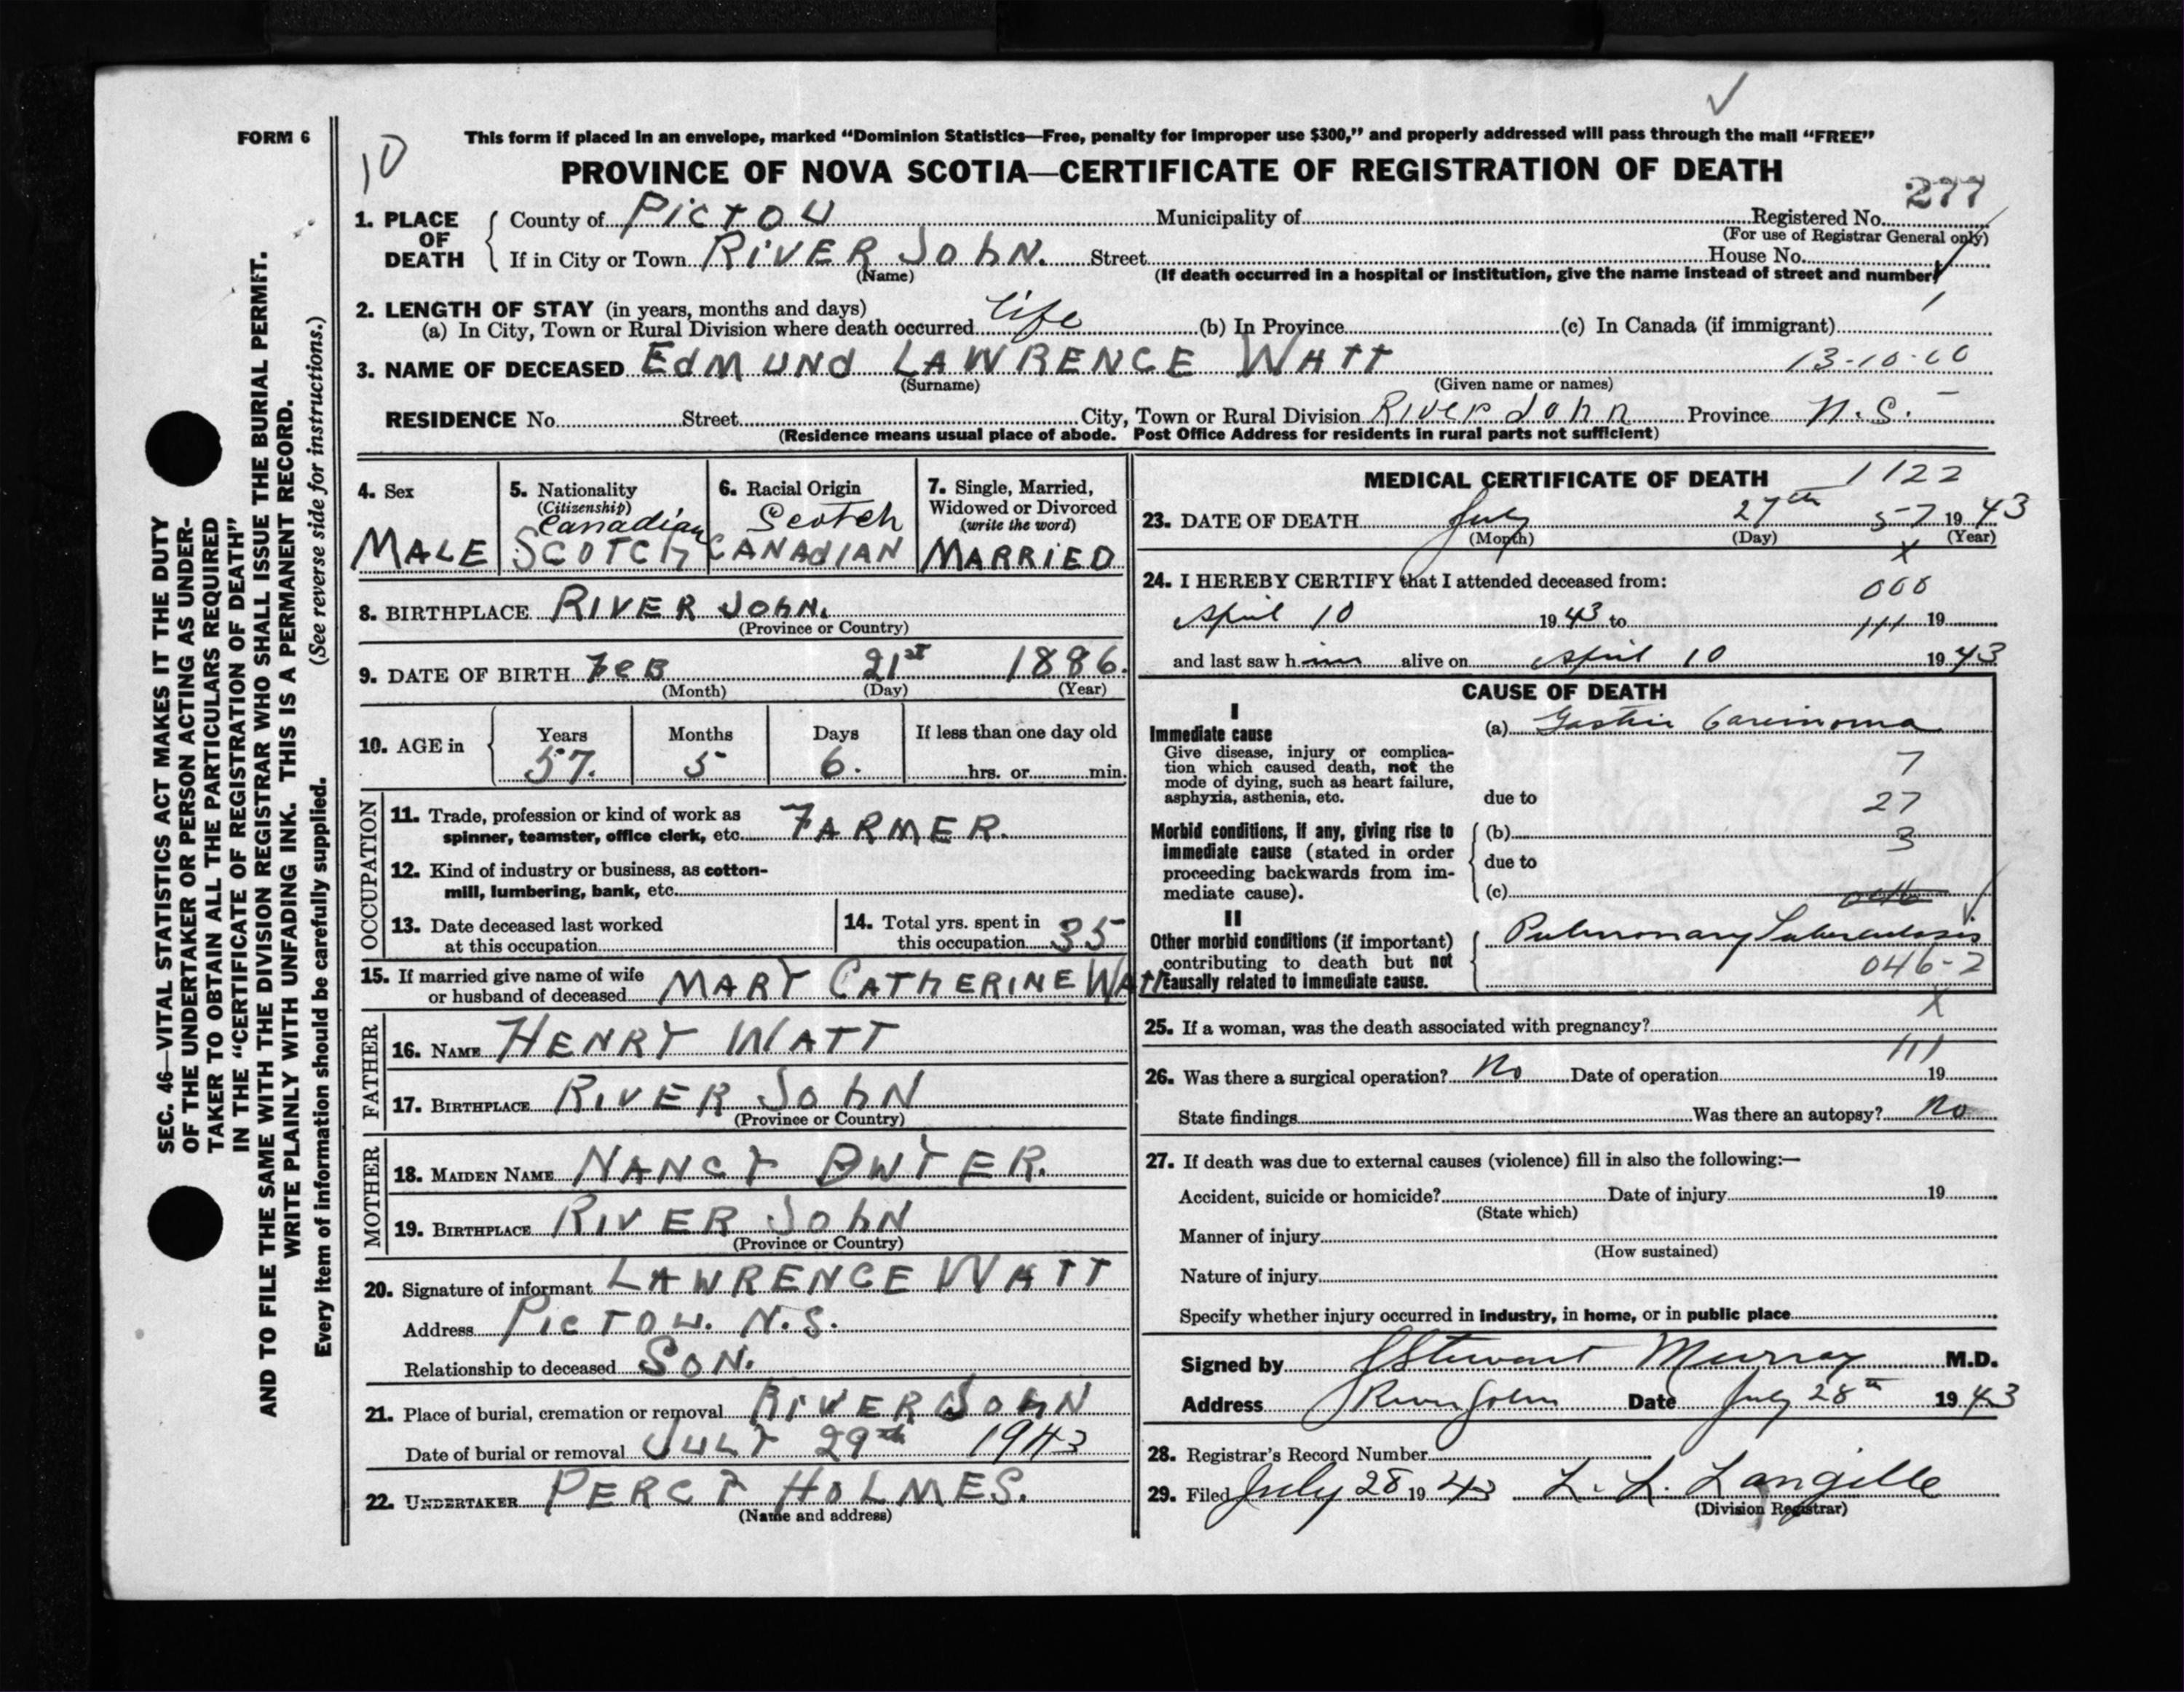 FORM 6
SEC. 46—VITAL STATISTICS ACT MAKES IT THE DUTY
OF THE UNDERTAKER OR PERSON ACTING AS UNDER-
TAKER TO OBTAIN ALL THE PARTICULARS REQUIRED
IN THE "CERTIFICATE OF REGISTRATION OF DEATH"
AND TO FILE THE SAME WITH THE DIVISION REGISTRAR WHO SHALL ISSUE THE BURIAL PERMIT.
WRITE PLAINLY WITH UNFADING INK. THIS IS A PERMANENT RECORD.
Every item of information should be carefully supplied. (See reverse side for instructions.)
10
This form if placed in an envelope, marked "Dominion Statistics—Free, penalty for improper use $300," and properly addressed will pass through the mail "FREE"
PROVINCE OF NOVA SCOTIA—CERTIFICATE OF REGISTRATION OF DEATH
277
1. PLACE OF DEATH County of PICTOU Municipality of Registered No.
(For use of Registrar General only)
If in City or Town RIVER JOHN. Street House No.
(Name) (If death occurred in a hospital or institution, give the name instead of street and number)
2. LENGTH OF STAY (in years, months and days)
(a) In City, Town or Rural Division where death occurred life (b) In Province (c) In Canada (if immigrant)
3. NAME OF DECEASED EDMUND LAWRENCE WATT 13-10-00
(Surname) (Given name or names)
RESIDENCE No. Street City, Town or Rural Division River John Province N.S.
(Residence means usual place of abode. Post Office Address for residents in rural parts not sufficient)
4. Sex
MALE
5. Nationality
(Citizenship)
Canadian
SCOTCH
6. Racial Origin
Scotch
CANADIAN
7. Single, Married,
Widowed or Divorced
(write the word)
MARRIED
8. BIRTHPLACE RIVER JOHN.
(Province or Country)
9. DATE OF BIRTH FEB 21st 1886.
(Month) (Day) (Year)
10. AGE in Years Months Days If less than one day old
57. 5 6. hrs. or min.
OCCUPATION
11. Trade, profession or kind of work as
spinner, teamster, office clerk, etc. FARMER.
12. Kind of industry or business, as cotton-
mill, lumbering, bank, etc.
13. Date deceased last worked
at this occupation
14. Total yrs. spent in
this occupation 35
15. If married give name of wife
or husband of deceased MARY CATHERINE WATT
FATHER
16. NAME HENRY WATT
17. BIRTHPLACE RIVER JOHN
(Province or Country)
MOTHER
18. MAIDEN NAME NANCY DWYER.
19. BIRTHPLACE RIVER JOHN
(Province or Country)
20. Signature of informant LAWRENCE WATT
Address PICTOU. N.S.
Relationship to deceased SON.
21. Place of burial, cremation or removal RIVER JOHN
Date of burial or removal JULY 29th 1943
22. UNDERTAKER PERCY HOLMES.
(Name and address)
MEDICAL CERTIFICATE OF DEATH 1122
23. DATE OF DEATH July 27th 57 1943
(Month) (Day) (Year)
X
24. I HEREBY CERTIFY that I attended deceased from: 000
April 10 1943 to 111 19
and last saw him alive on April 10 1943
CAUSE OF DEATH
I
Immediate cause
Give disease, injury or complica-
tion which caused death, not the
mode of dying, such as heart failure,
asphyxia, asthenia, etc.
(a) Gastric Carcinoma
7
due to 27
Morbid conditions, if any, giving rise to
immediate cause (stated in order
proceeding backwards from im-
mediate cause).
(b) 3
due to
(c) 046
II
Other morbid conditions (if important)
contributing to death but not
causally related to immediate cause.
Pulmonary Tuberculosis
046-2
X
25. If a woman, was the death associated with pregnancy?
111
26. Was there a surgical operation? No Date of operation 19
State findings Was there an autopsy? No
27. If death was due to external causes (violence) fill in also the following:—
Accident, suicide or homicide? Date of injury 19
(State which)
Manner of injury
(How sustained)
Nature of injury
Specify whether injury occurred in industry, in home, or in public place
Signed by J Stewart Murray M.D.
Address River John Date July 28th 1943
28. Registrar's Record Number
29. Filed July 28 1943 L. L. Langille
(Division Registrar)